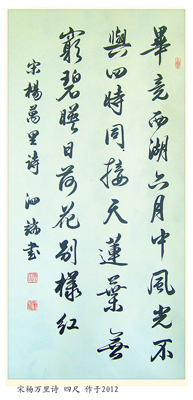 畢竟西湖六月中風光不
與四時同接天蓮葉無
窮碧暎日荷花别樣紅
宋楊萬里诗 泗瑞書
宋杨万里诗 四尺 作于2012